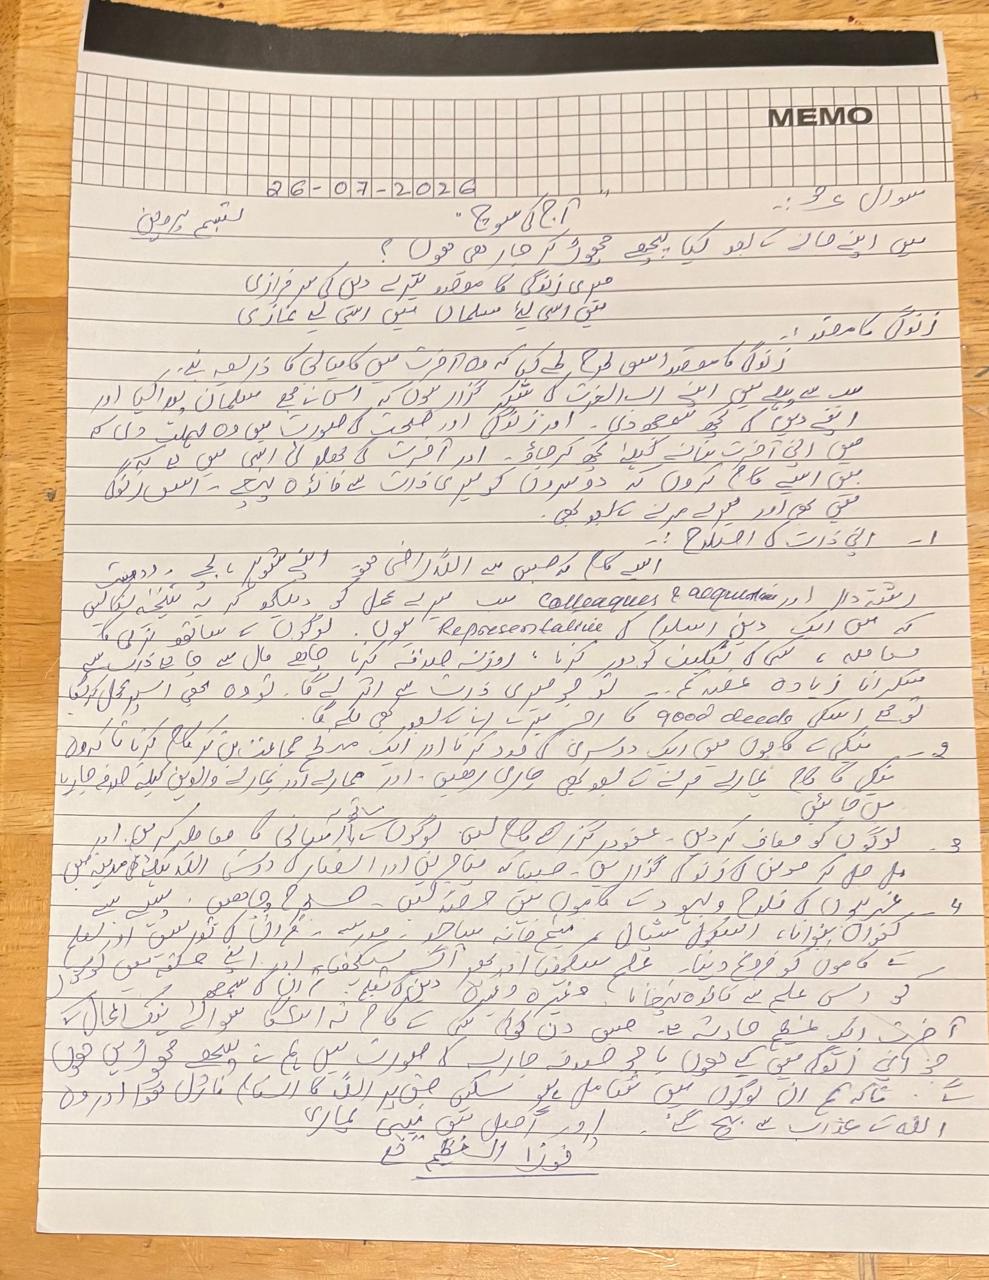 MEMO
26-07-2026
سوال نمبر 3:۔
"آج کی سوچ"
تبسم پروین
میں اپنے جانے کے بعد کیا پیچھے چھوڑ کر جا رہی ہوں؟
میری زندگی کا مقصد تیرے دین کی سرفرازی
میں اسی لیۓ مسلماں میں اسی لیے نمازی
زندگی کا مقصد:۔
زندگی کا مقصد اسطرح طے کیا کہ وہ آخرت میں کامیابی کا ذریعہ بنے۔
سب سے پہلے میں اپنے رب العزت کی شکر گزار ہوں کہ اس نے مجھے مسلمان پیدا کیا اور
اپنے دین کی کچھ سمجھ دی۔ اور زندگی اور صحت کی صورت میں وہ مہلت دی کہ
میں اپنی آخرت بنانے کیلئے کچھ کر جاؤں۔ اور آخرت کی بھلائی اسی میں ہے کہ
میں ایسے کام کروں کہ دوسروں کو میری ذات سے فائدہ پہنچے۔ اس زندگی
میں بھی اور میرے مرنے کے بعد بھی۔
1۔ اپنی ذات کی اصلاح:۔
ایسے کام کہ جس سے اللہ راضی ہو اپنے شوہر، بچے، دوست
رشتہ دار اور colleagues & سب میرے عمل کو دیکھ کر یہ نتیجہ نکالیں
کہ میں ایک دین اسلام کی Representative ہوں۔ لوگوں کے ساتھ نرمی کا
معاملہ، کسی کی تکلیف کو دور کرنا، روزانہ صدقہ کرنا چاہے مال سے چاہے ذات سے
مسکرانا زیادہ غصہ کم۔۔ تو جو میری ذات سے اثر لے گا۔ تو وہ بھی اس پر عمل کریگا
تو مجھے اسکی good deeds کا اجر میرے جانے کے بعد بھی ملے گا۔
2۔ نیکی کے کاموں میں ایک دوسرے کی مدد کرنا اور ایک جماعت بن کر کام کرنا تاکہ وہ
نیکی کا کام ہمارے مرنے کے بعد بھی جاری رکھیں۔ اور ہمارے اور ہمارے والدین کیلئے صدقہ جاریہ
بن جائیں
3۔ لوگوں کو معاف کر دیں۔ عفو و درگزر سے کام لیں۔ لوگوں کے ساتھ آسانی کا معاملہ کریں۔ اور
مل جل کر مومن کی زندگی گزاریں۔ جیسا کہ مہاجرین اور انصار کی دوستی اللہ نے مدینہ میں
4۔ غریبوں کی فلاح و بہبود کے کاموں میں حصہ لیں۔ پیسے سے
کنواں بنوانا، اسکول، یتیم خانہ مساجد، مدرسے، قرآن کی تدریس اور تعلیم
کے کاموں کو فروغ دینا۔ علم سیکھنا اور پھر آگے سیکھانا، اور اپنے حلقے میں لوگوں
کو اس علم سے فائدہ پہنچانا، وغیرہ وغیرہ دین کی تعلیم، قرآن کی سمجھ
آخرت ایک عظیم حادثہ ہے۔ جس دن کوئی کسی کے کام نہ آئیگا سوائے نیک اعمال کے
جو اپنی زندگی میں کیے ہوں یا جو صدقہ جاریہ کی صورت میں ہم نے پیچھے چھوڑیں ہوں
گے۔ تاکہ ہم ان لوگوں میں شامل ہو سکیں جن پر اللہ کا انعام نازل ہوا اور وہ
اللہ کے عذاب سے بچ گئے۔ اور اصل میں یہی ہماری
فوزا العظیم ہے